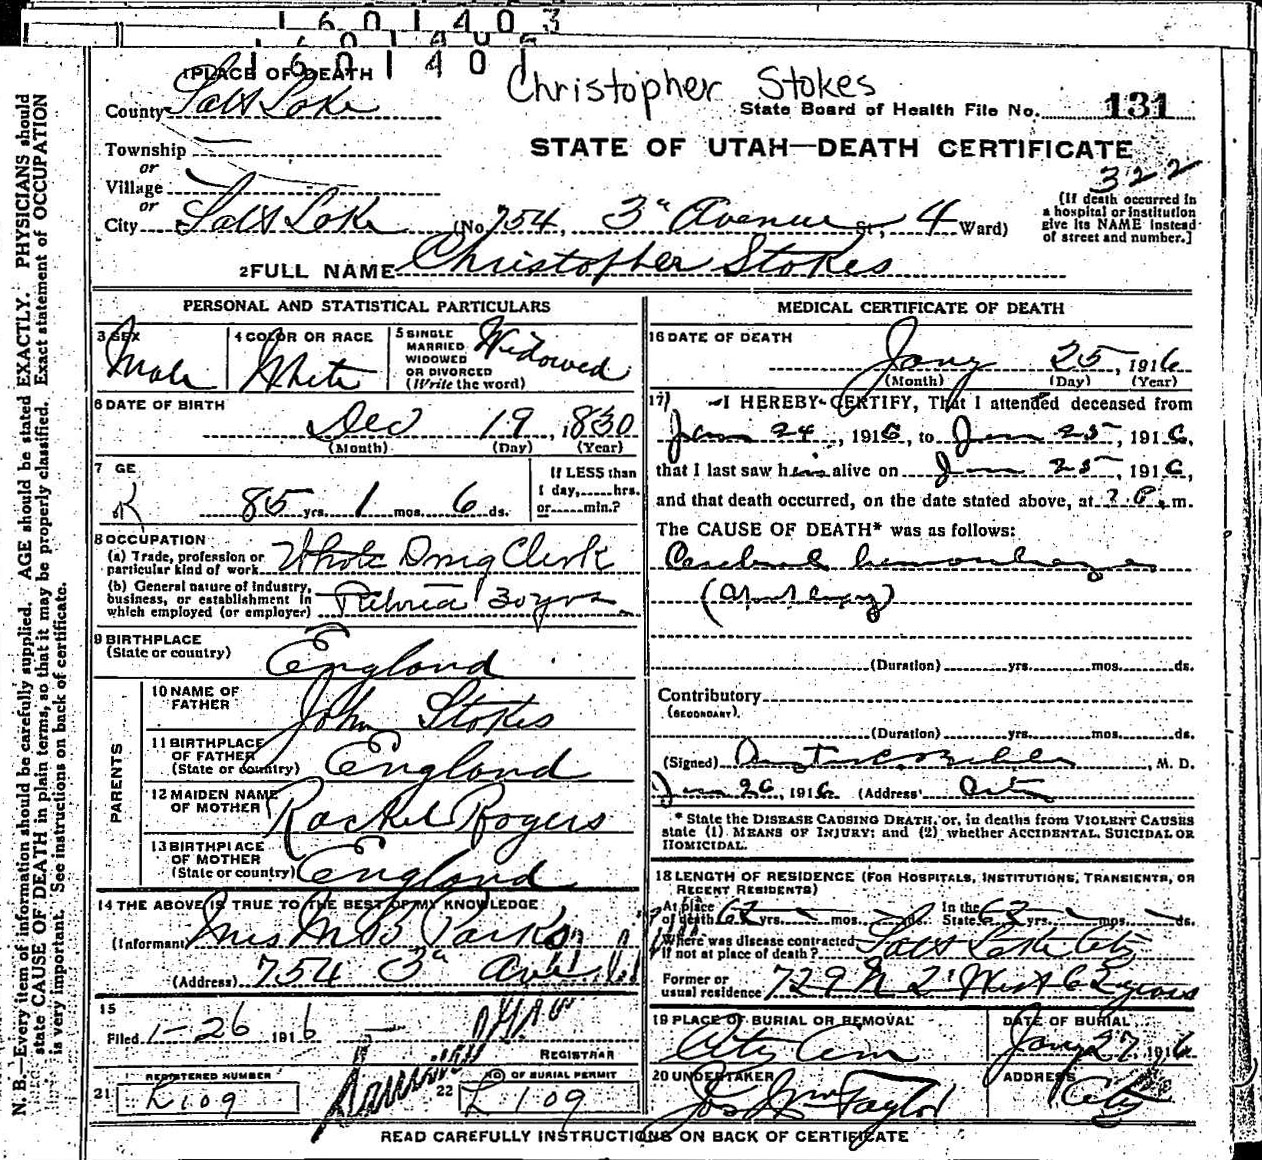 1601403
1601401
Christopher Stokes
1 PLACE OF DEATH
State Board of Health File No. 131
County Salt Lake
STATE OF UTAH—DEATH CERTIFICATE
Township
or
322
Village
or
City Salt Lake (No 754, 3d Avenue St., 4 Ward)
[If death occurred in
a hospital or institution
give its NAME instead
of street and number.]
2 FULL NAME Christopher Stokes
PERSONAL AND STATISTICAL PARTICULARS
3 SEX
Male
4 COLOR OR RACE
White
5 SINGLE
MARRIED
WIDOWED
OR DIVORCED
(Write the word)
Widowed
6 DATE OF BIRTH
Dec 19, 1830
(Month) (Day) (Year)
7 AGE
85 yrs. 1 mos. 6 ds.
If LESS than
1 day,......hrs.
or......min.?
8 OCCUPATION
(a) Trade, profession or
particular kind of work Drug Clerk
(b) General nature of industry,
business, or establishment in
which employed (or employer) Retired 30 yrs
9 BIRTHPLACE
(State or country)
England
PARENTS
10 NAME OF
FATHER
John Stokes
11 BIRTHPLACE
OF FATHER
(State or country)
England
12 MAIDEN NAME
OF MOTHER
Rachel Rogers
13 BIRTHPLACE
OF MOTHER
(State or country)
England
14 THE ABOVE IS TRUE TO THE BEST OF MY KNOWLEDGE
(Informant) Mrs M B Parks
(Address) 754 3d Ave
15
Filed 1-26 1916
REGISTRAR
REGISTERED NUMBER
21 L 109
NO OF BURIAL PERMIT
22 L 109
MEDICAL CERTIFICATE OF DEATH
16 DATE OF DEATH
Jany 25, 1916
(Month) (Day) (Year)
17) I HEREBY CERTIFY, That I attended deceased from
Jan 24, 1916, to Jan 25, 1916,
that I last saw him alive on Jan 25, 1916,
and that death occurred, on the date stated above, at P. m.
The CAUSE OF DEATH* was as follows:
Cerebral hemorrhage
(Apoplexy)
(Duration) yrs. mos. ds.
Contributory
(SECONDARY)
(Duration) yrs. mos. ds.
(Signed) , M. D.
Jan 26, 1916 (Address) City
* State the DISEASE CAUSING DEATH, or, in deaths from VIOLENT CAUSES
state (1) MEANS OF INJURY; and (2) whether ACCIDENTAL, SUICIDAL OR
HOMICIDAL.
18 LENGTH OF RESIDENCE (FOR HOSPITALS, INSTITUTIONS, TRANSIENTS, OR
RECENT RESIDENTS)
At place
of death 62 yrs. mos. ds.
In the
State 63 yrs. mos. ds.
Where was disease contracted
If not at place of death? Salt Lake City
Former or
usual residence 729 N 2d West 62 years
19 PLACE OF BURIAL OR REMOVAL
City Cem
DATE OF BURIAL
Jany 27 1916
20 UNDERTAKER
Jos Wm Taylor
ADDRESS
City
READ CAREFULLY INSTRUCTIONS ON BACK OF CERTIFICATE
N. B.—Every item of information should be carefully supplied. AGE should be stated EXACTLY. PHYSICIANS should
state CAUSE OF DEATH in plain terms, so that it may be properly classified. Exact statement of OCCUPATION
is very important. See instructions on back of certificate.